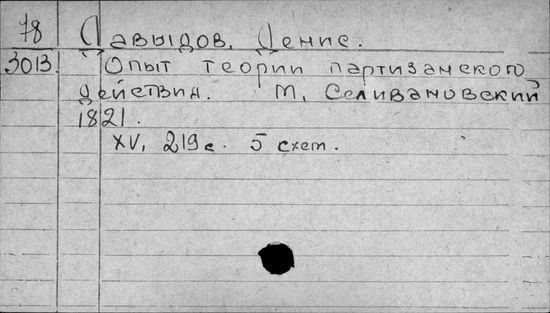 78 Давыдов, Денис.
3013. Опыт теории партизанского
действия. М, Селивановский
1821.
XV, 219 с. 5 схем.